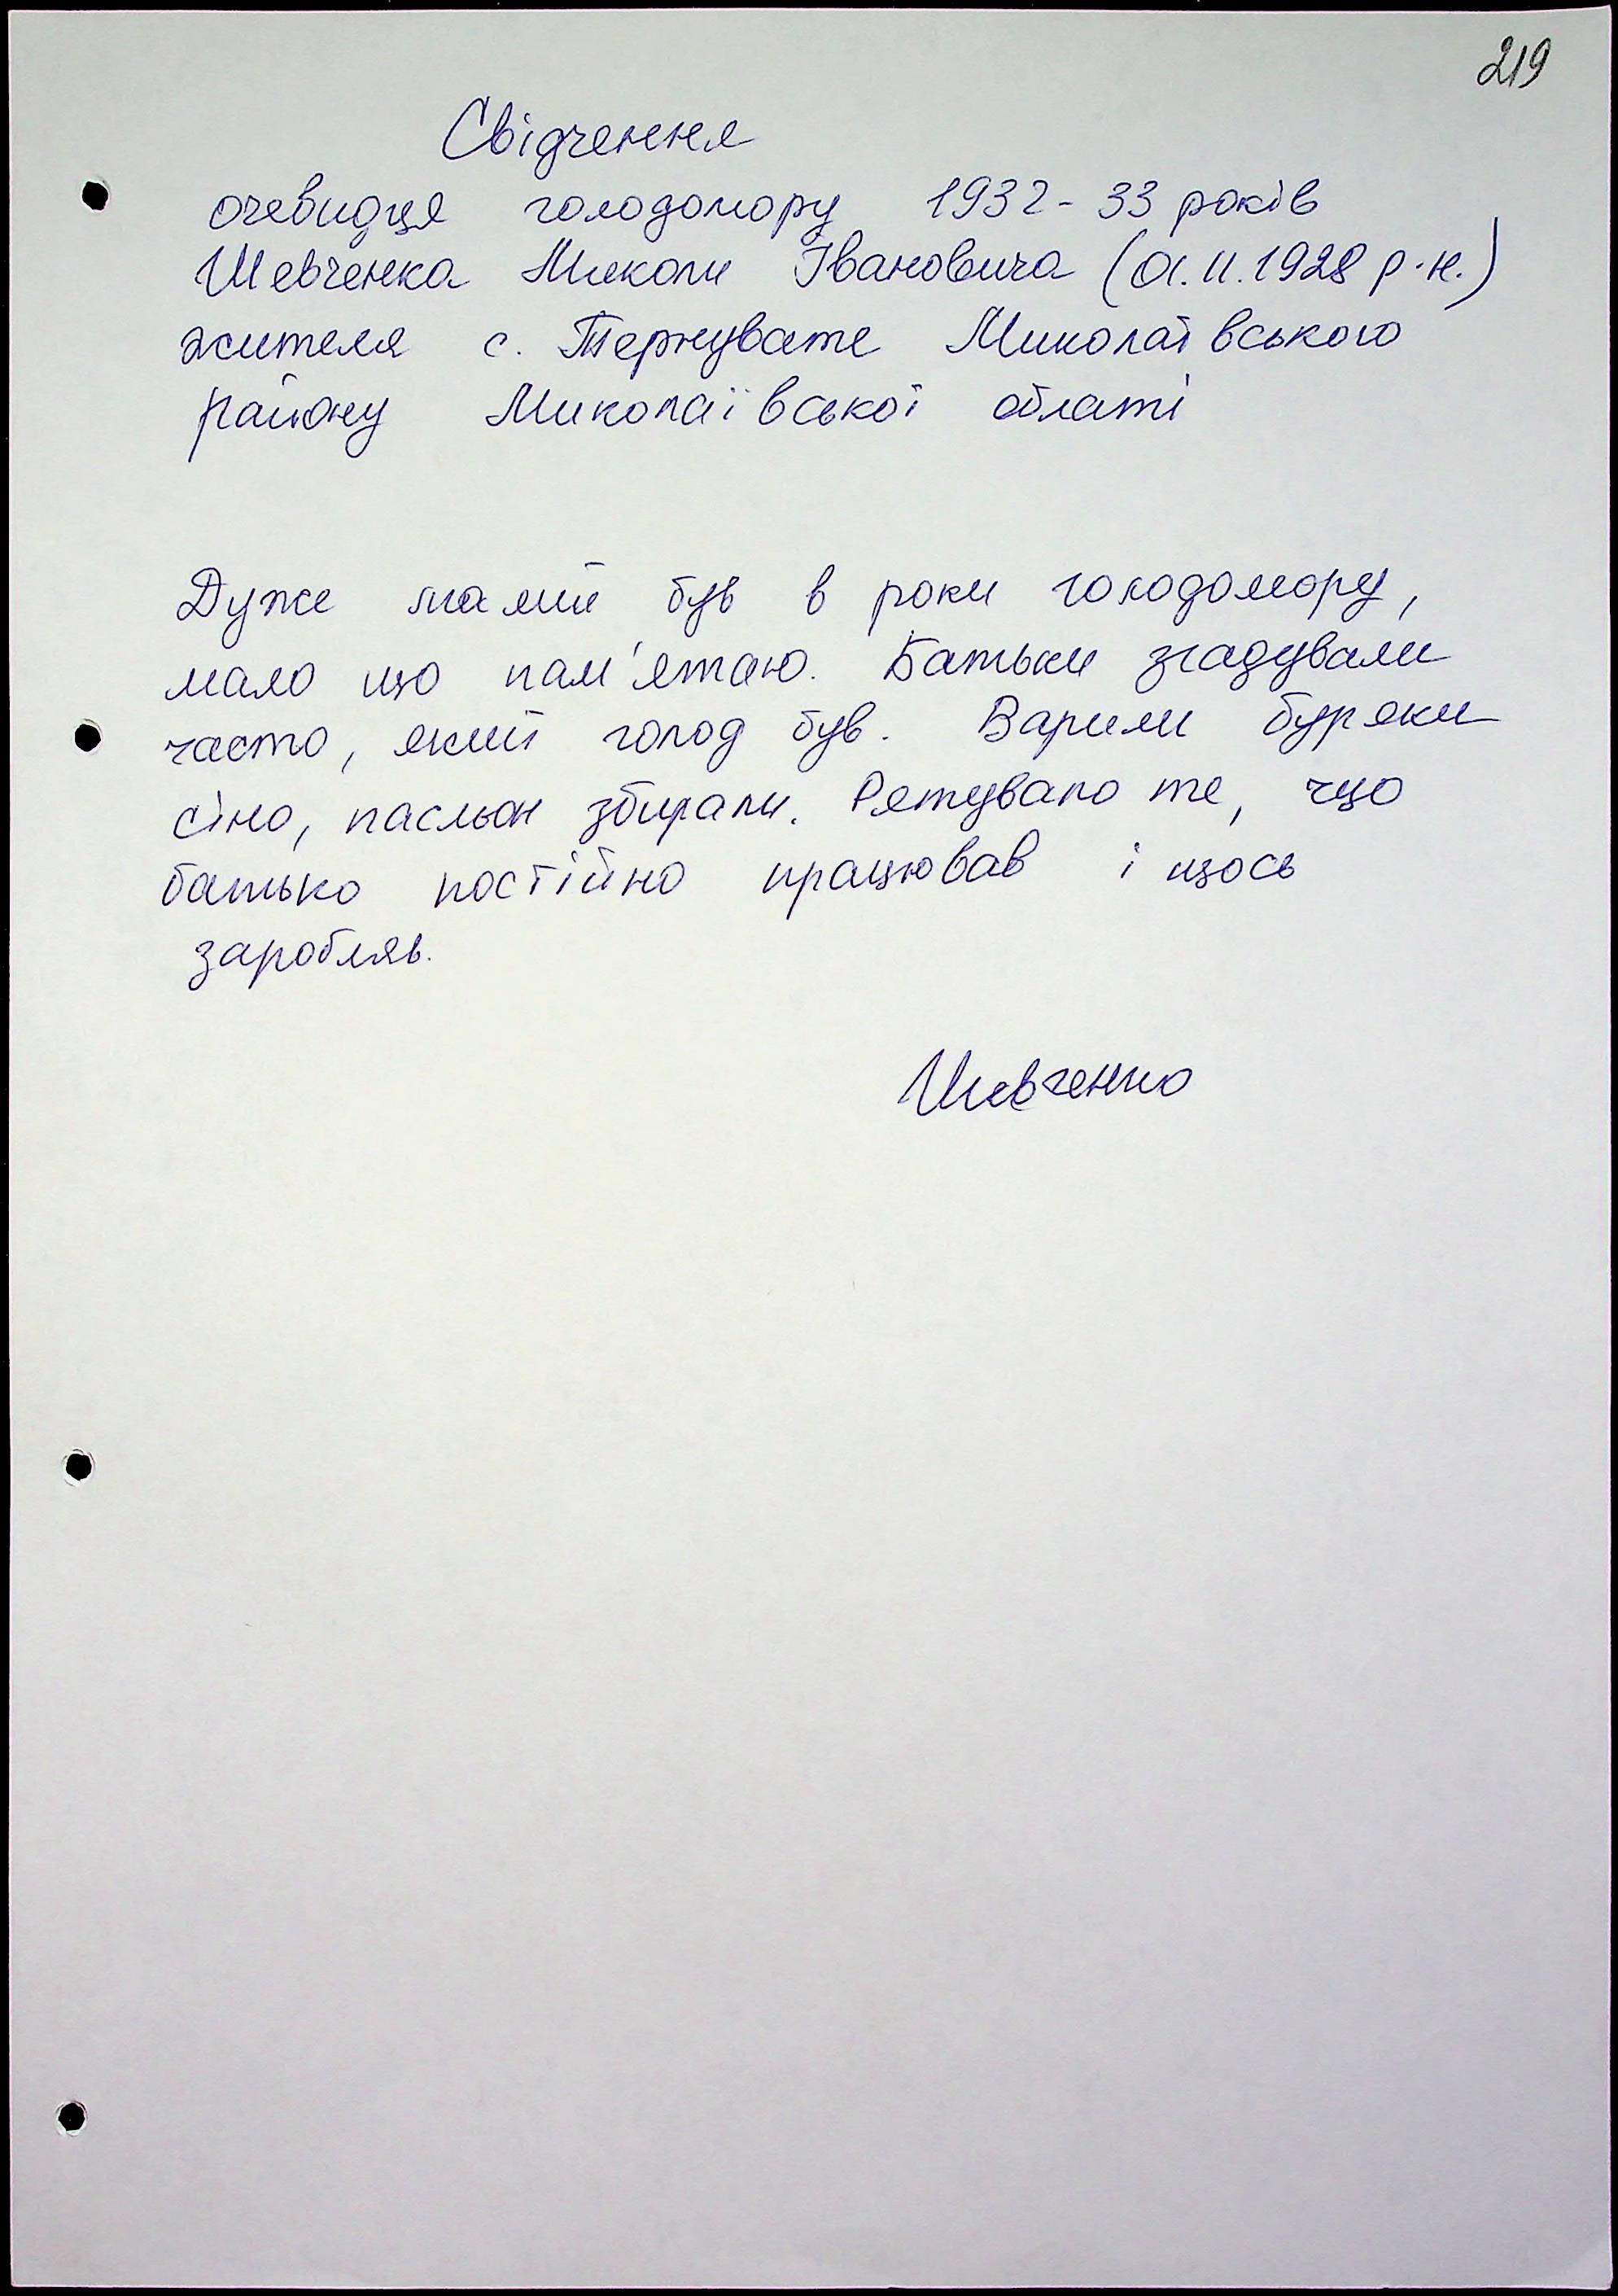 219
Свідчення
очевидця голодомору 1932-33 років
Шевченка Миколи Івановича (01.11.1928 р.н.)
жителя с. Тернувате Миколаївського
району Миколаївської області
Дуже малий був в роки голодомору,
мало що пам'ятаю. Батьки згадували
часто, який голод був. Варили буряки
сіно, пасльон збирали. Рятувало те, що
батько постійно працював і щось
заробляв.
Шевченко